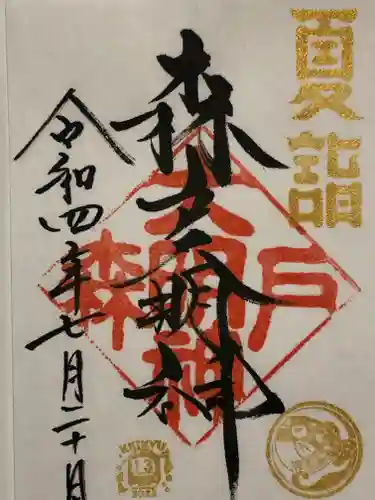 夏詣
森戸大明神
森戸大明神
令和四年七月二十日
13